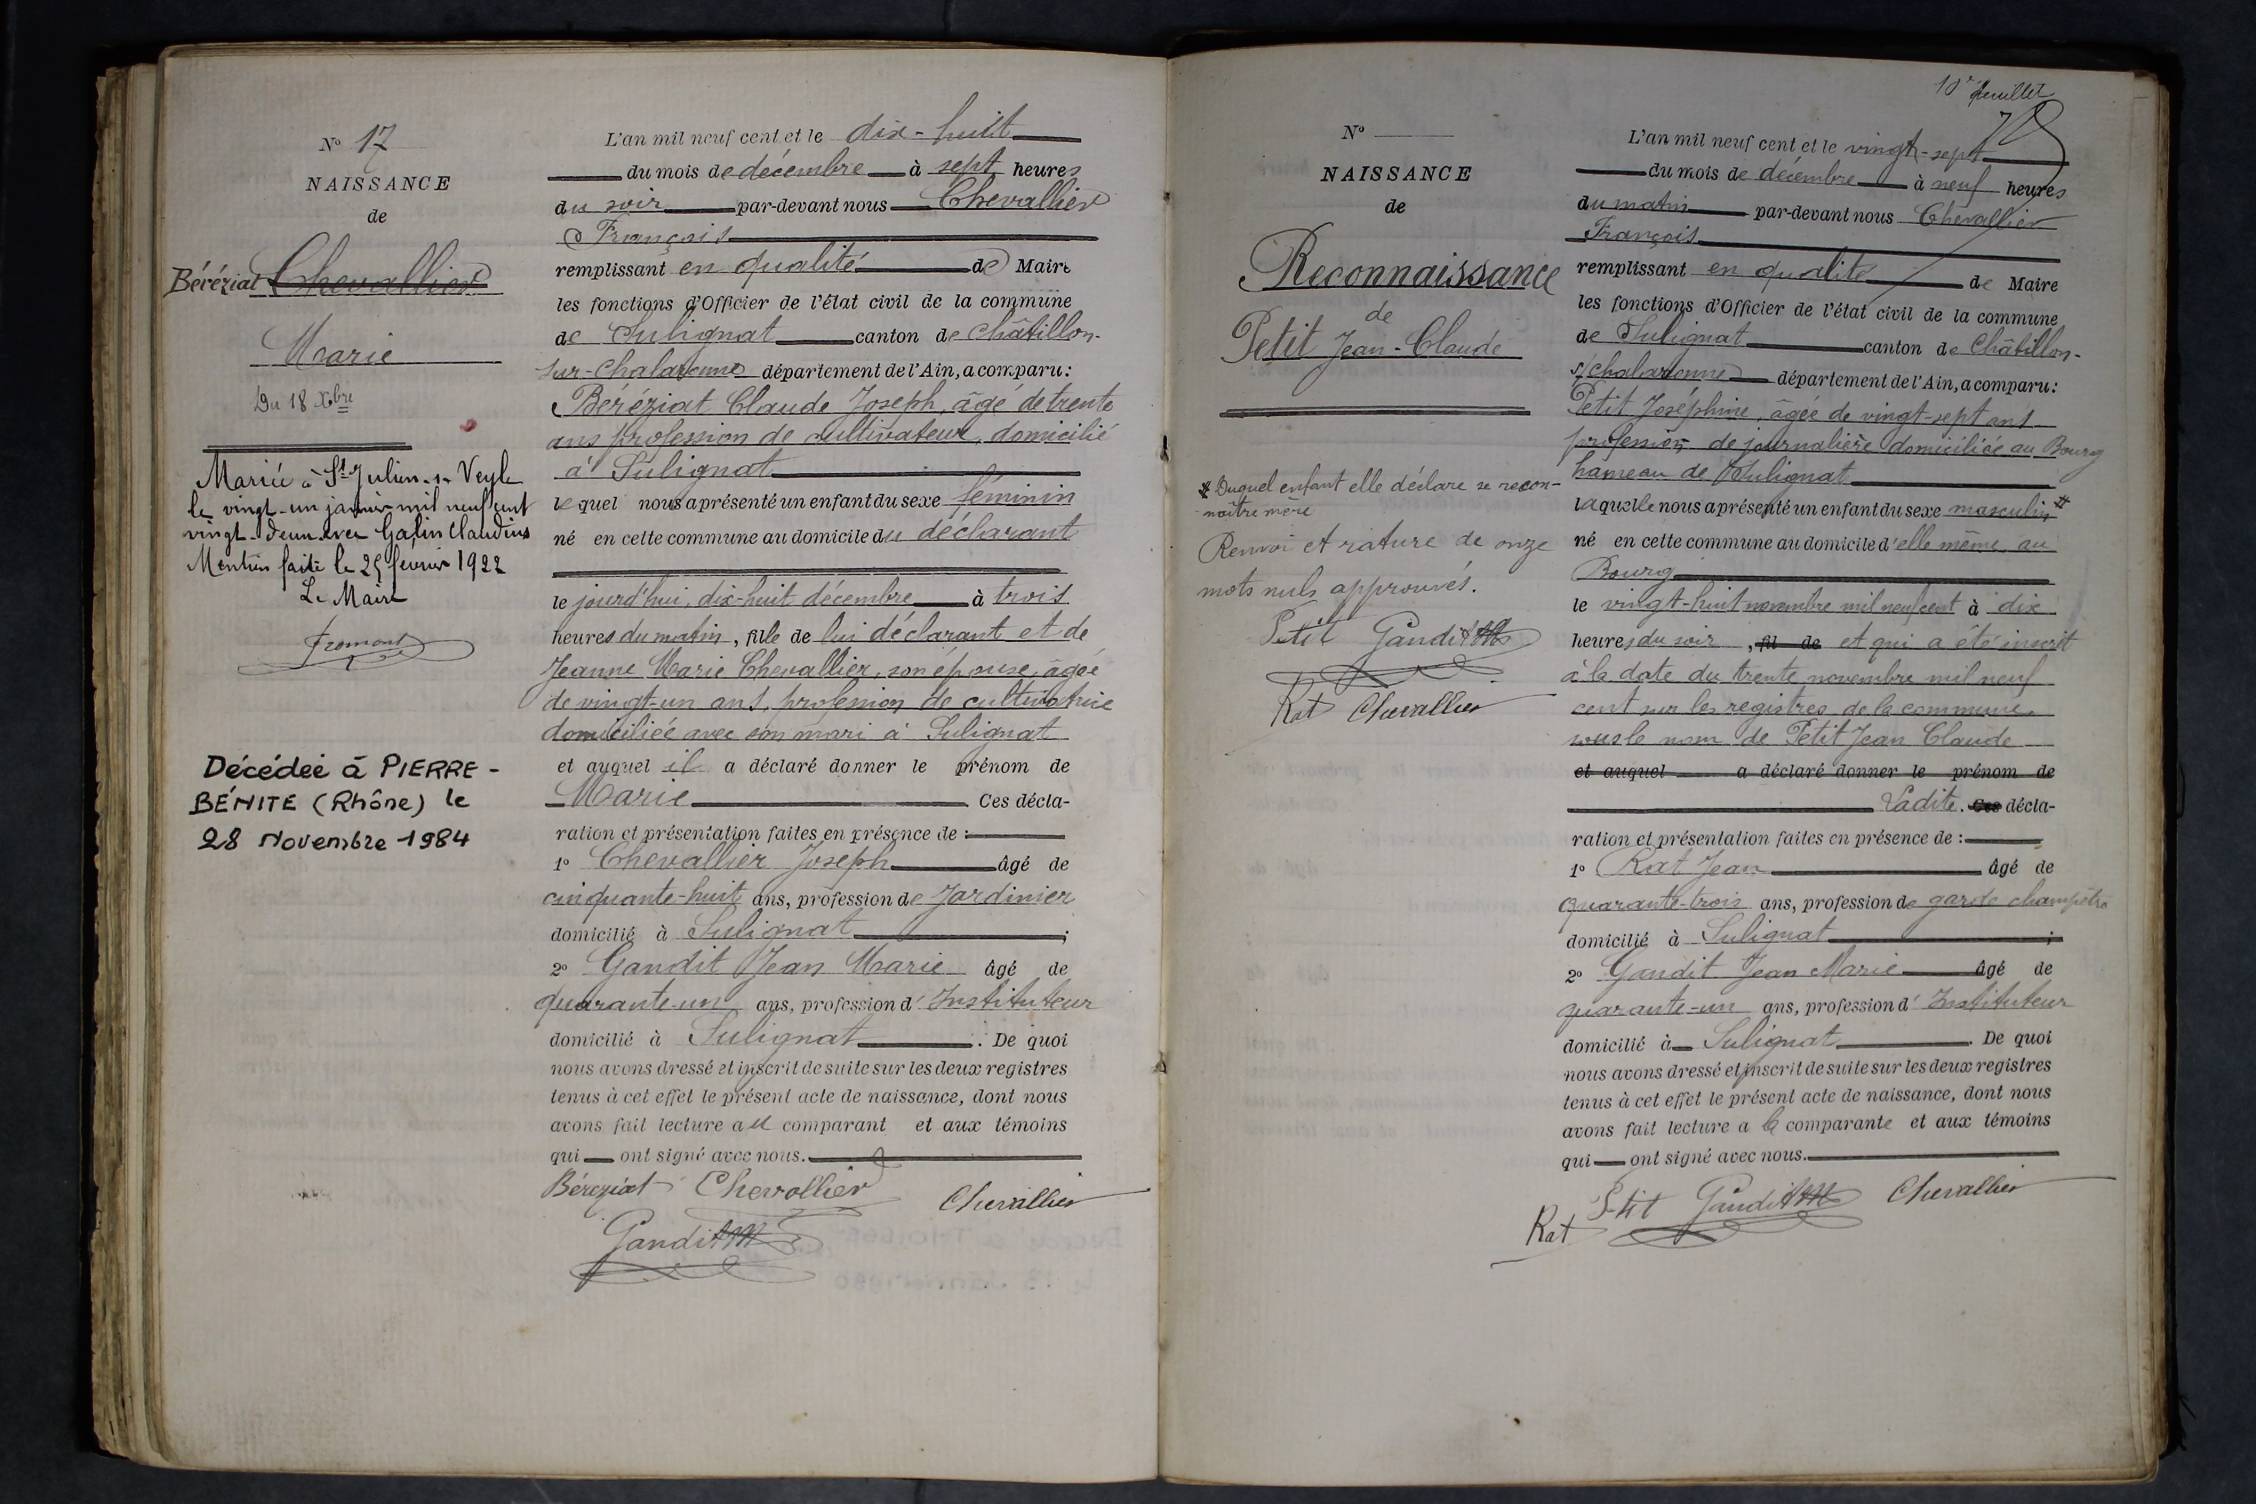 N° 17
NAISSANCE
de
Béréziat Chevallier
Marie
Du 18 Xbre
Mariée à St Julien-s-Veyle
le vingt-un janvier mil neuf cent
vingt-deux avec Galin Claudius
Mention faite le 25 février 1922
Le Maire
Fromont
Décédée à PIERRE-
BÉNITE (Rhône) le
28 Novembre 1984
L'an mil neuf cent et le dix-huit
du mois de décembre à sept heures
du soir par-devant nous Chevallier
François
remplissant en qualité de Maire
les fonctions d'Officier de l'état civil de la commune
de Sulignat canton de Châtillon-
sur-Chalaronne département de l'Ain, a comparu:
Béréziat Claude Joseph, âgé de trente
ans profession de cultivateur, domicilié
à Sulignat
lequel nous a présenté un enfant du sexe féminin
né en cette commune au domicile du déclarant
le jourd'hui, dix-huit décembre à trois
heures du matin, fille de lui déclarant et de
Jeanne Marie Chevallier, son épouse, âgée
de vingt-un ans, profession de cultivatrice
domiciliée avec son mari à Sulignat
et auquel il a déclaré donner le prénom de
Marie Ces décla-
ration et présentation faites en présence de :
1° Chevallier Joseph âgé de
cinquante-huit ans, profession de Jardinier
domicilié à Sulignat ;
2° Gandit Jean Marie âgé de
quarante-un ans, profession d'Instituteur
domicilié à Sulignat . De quoi
nous avons dressé et inscrit de suite sur les deux registres
tenus à cet effet le présent acte de naissance, dont nous
avons fait lecture au comparant et aux témoins
qui ont signé avec nous.
Béréziat Chevallier Chevallier
Gandit JM
10e feuillet
N°
NAISSANCE
de
Reconnaissance
de
Petit Jean-Claude
# Duquel enfant elle déclare se recon-
naître mère
Renvoi et rature de onze
mots nuls approuvés.
Petit Gandit JM
Rat Chevallier
L'an mil neuf cent et le vingt-sept
du mois de décembre à neuf heures
du matin par-devant nous Chevallier
François
remplissant en qualité de Maire
les fonctions d'Officier de l'état civil de la commune
de Sulignat canton de Châtillon-
s/chalaronne département de l'Ain, a comparu:
Petit Joséphine, âgée de vingt-sept ans
profession de journalière domiciliée au Bourg
hameau de Sulignat
laquelle nous a présenté un enfant du sexe masculin #
né en cette commune au domicile d'elle même, au
Bourg
le vingt-huit novembre mil neuf cent à dix
heures du soir , fil de et qui a été inscrit
à la date du trente novembre mil neuf
cent sur les registres de la commune
sous le nom de Petit Jean Claude
et auquel a déclaré donner le prénom de
Ladite. Ces décla-
ration et présentation faites en présence de :
1° Rat Jean âgé de
quarante-trois ans, profession de garde champêtre
domicilié à Sulignat ;
2° Gandit Jean Marie âgé de
quarante-un ans, profession d'Instituteur
domicilié à Sulignat . De quoi
nous avons dressé et inscrit de suite sur les deux registres
tenus à cet effet le présent acte de naissance, dont nous
avons fait lecture a la comparante et aux témoins
qui ont signé avec nous.
Rat Petit Gandit JM Chevallier